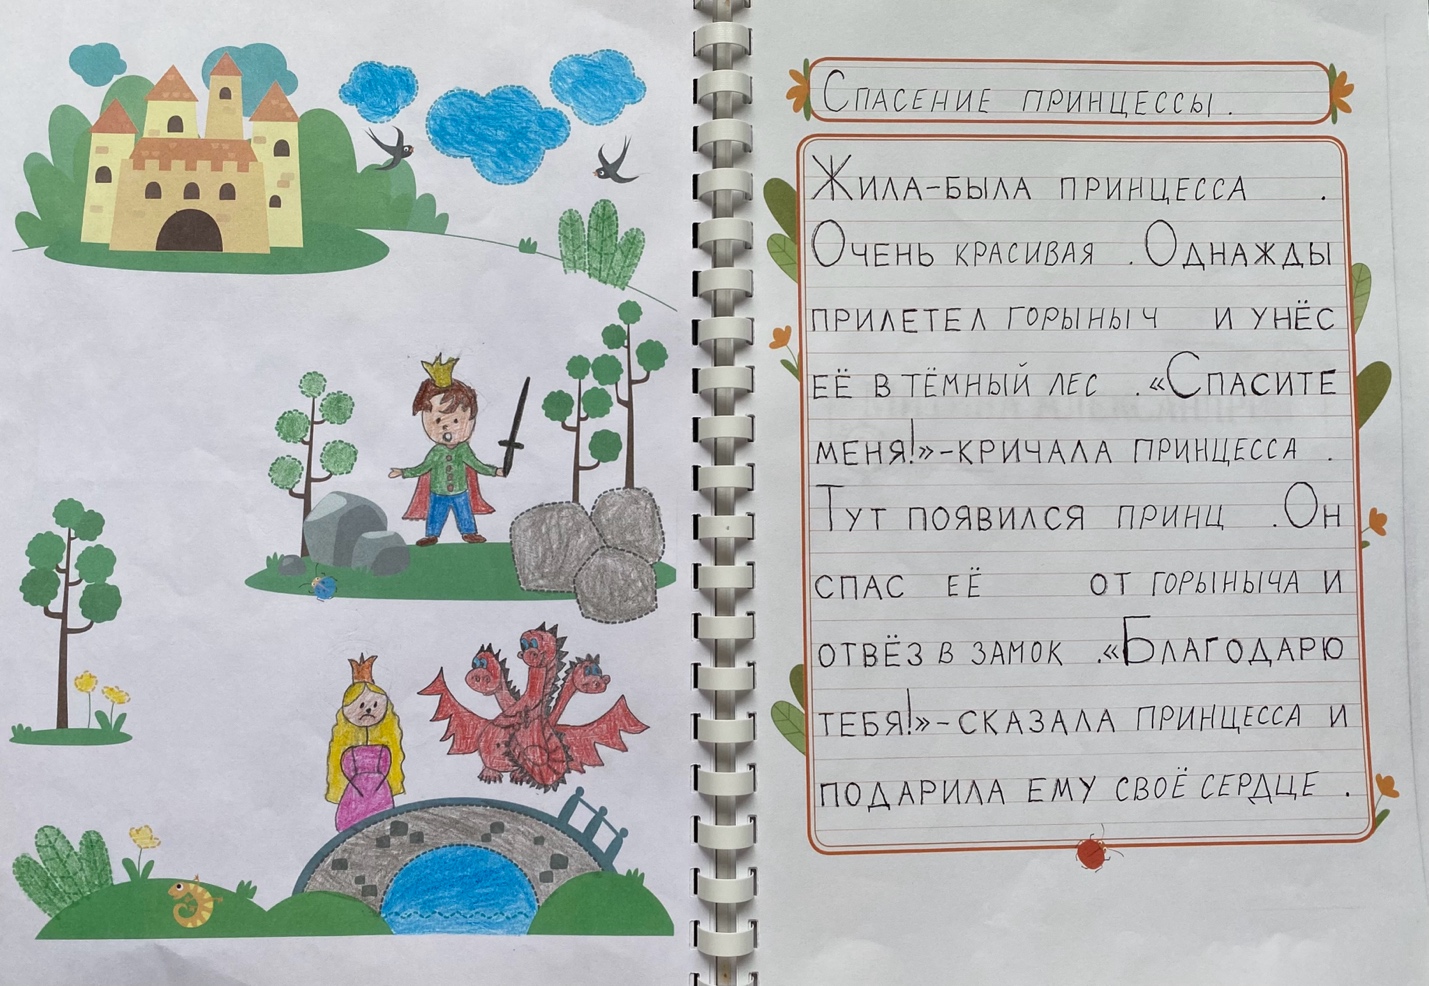 Спасение принцессы.
Жила-была принцесса .
Очень красивая . Однажды
прилетел Горыныч и унёс
её в тёмный лес . «Спасите
меня!»-кричала принцесса .
Тут появился принц . Он
спас её от Горыныча и
отвёз в замок .«Благодарю
тебя!»-сказала принцесса и
подарила ему своё сердце .